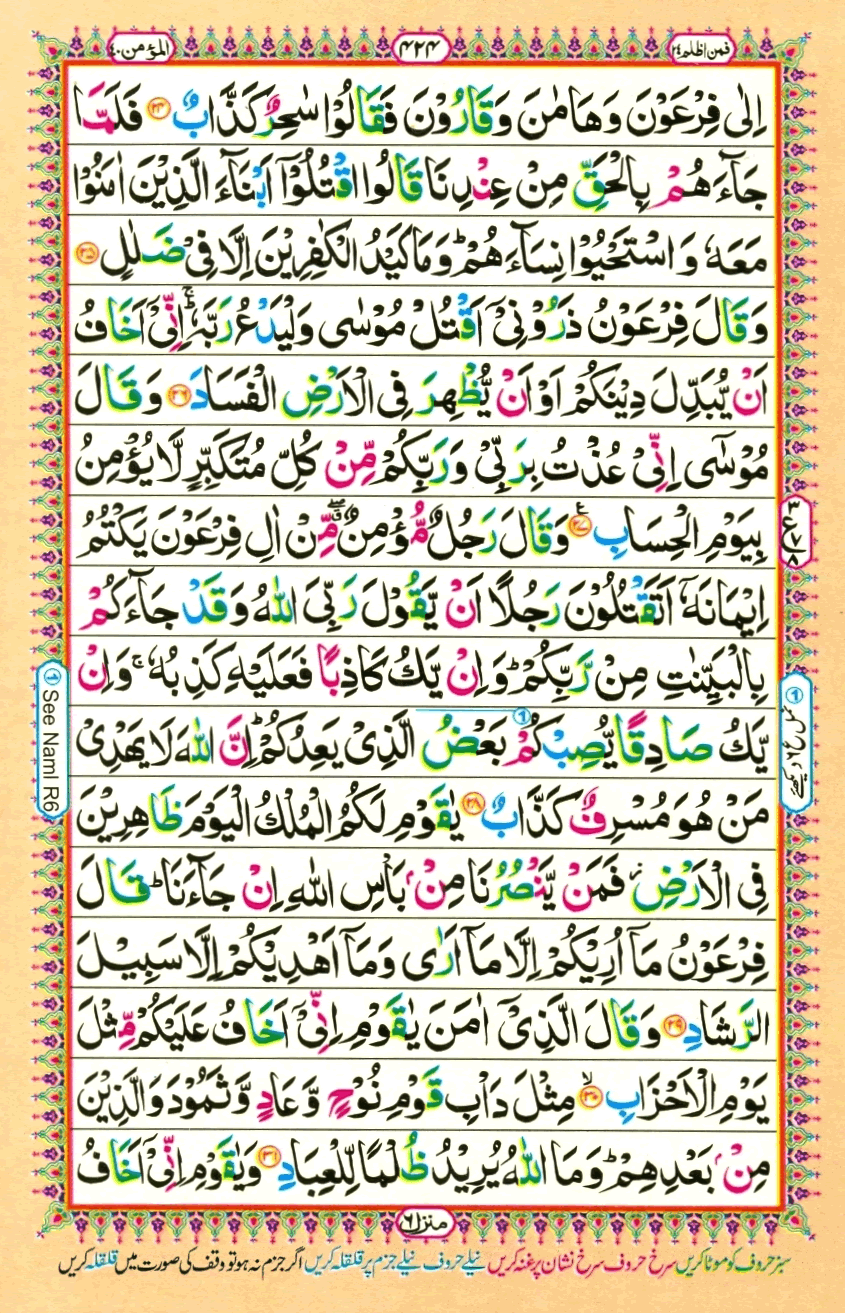 فمن اظلم ٢٤
٤٢٤
المؤمن ٤٠
اِلٰى فِرْعَوْنَ وَهَامٰنَ وَقَارُوْنَ فَقَالُوْا سٰحِرٌ كَذَّابٌ ﴿۲۴﴾ فَلَمَّا
جَآءَهُمْ بِالْحَقِّ مِنْ عِنْدِنَا قَالُوا اقْتُلُوْۤا اَبْنَآءَ الَّذِيْنَ اٰمَنُوْا
مَعَهٗ وَاسْتَحْيُوْا نِسَآءَهُمْ ؕ وَمَا كَيْدُ الْكٰفِرِيْنَ اِلَّا فِيْ ضَلٰلٍ ﴿۲۵﴾
وَقَالَ فِرْعَوْنُ ذَرُوْنِيْۤ اَقْتُلْ مُوْسٰى وَلْيَدْعُ رَبَّهٗ ۚ اِنِّيْۤ اَخَافُ
اَنْ يُّبَدِّلَ دِيْنَكُمْ اَوْ اَنْ يُّظْهِرَ فِى الْاَرْضِ الْفَسَادَ ﴿۲۶﴾ وَقَالَ
مُوْسٰۤى اِنِّيْ عُذْتُ بِرَبِّيْ وَرَبِّكُمْ مِّنْ كُلِّ مُتَكَبِّرٍ لَّا يُؤْمِنُ
بِيَوْمِ الْحِسَابِ ﴿۲۷﴾ ع وَقَالَ رَجُلٌ مُّؤْمِنٌ ۖ مِّنْ اٰلِ فِرْعَوْنَ يَكْتُمُ
اِيْمَانَهٗۤ اَتَقْتُلُوْنَ رَجُلًا اَنْ يَّقُوْلَ رَبِّيَ اللّٰهُ وَقَدْ جَآءَكُمْ
بِالْبَيِّنٰتِ مِنْ رَّبِّكُمْ ؕ وَاِنْ يَّكُ كَاذِبًا فَعَلَيْهِ كَذِبُهٗ ۚ وَاِنْ
يَّكُ صَادِقًا يُّصِبْكُمْ ① بَعْضُ الَّذِيْ يَعِدُكُمْ ؕ اِنَّ اللّٰهَ لَا يَهْدِيْ
مَنْ هُوَ مُسْرِفٌ كَذَّابٌ ﴿۲۸﴾ يٰقَوْمِ لَكُمُ الْمُلْكُ الْيَوْمَ ظَاهِرِيْنَ
فِى الْاَرْضِ ؗ فَمَنْ يَّنْصُرُنَا مِنْۢ بَاْسِ اللّٰهِ اِنْ جَآءَنَا ؕ قَالَ
فِرْعَوْنُ مَاۤ اُرِيْكُمْ اِلَّا مَاۤ اَرٰى وَمَاۤ اَهْدِيْكُمْ اِلَّا سَبِيْلَ
الرَّشَادِ ﴿۲۹﴾ وَقَالَ الَّذِيْۤ اٰمَنَ يٰقَوْمِ اِنِّيْۤ اَخَافُ عَلَيْكُمْ مِّثْلَ
يَوْمِ الْاَحْزَابِ ﴿۳۰﴾ ۙ مِثْلَ دَاْبِ قَوْمِ نُوْحٍ وَّعَادٍ وَّثَمُوْدَ وَالَّذِيْنَ
مِنْۢ بَعْدِهِمْ ؕ وَمَا اللّٰهُ يُرِيْدُ ظُلْمًا لِّلْعِبَادِ ﴿۳۱﴾ وَيٰقَوْمِ اِنِّيْۤ اَخَافُ
① See Naml R6
منزل ٦
سبز حروف کو موٹا کریں سرخ حروف سرخ نشان پر غنہ کریں نیلے حروف نیلے جزم پر قلقلہ کریں اگر جزم نہ ہو تو وقف کی صورت میں قلقلہ کریں